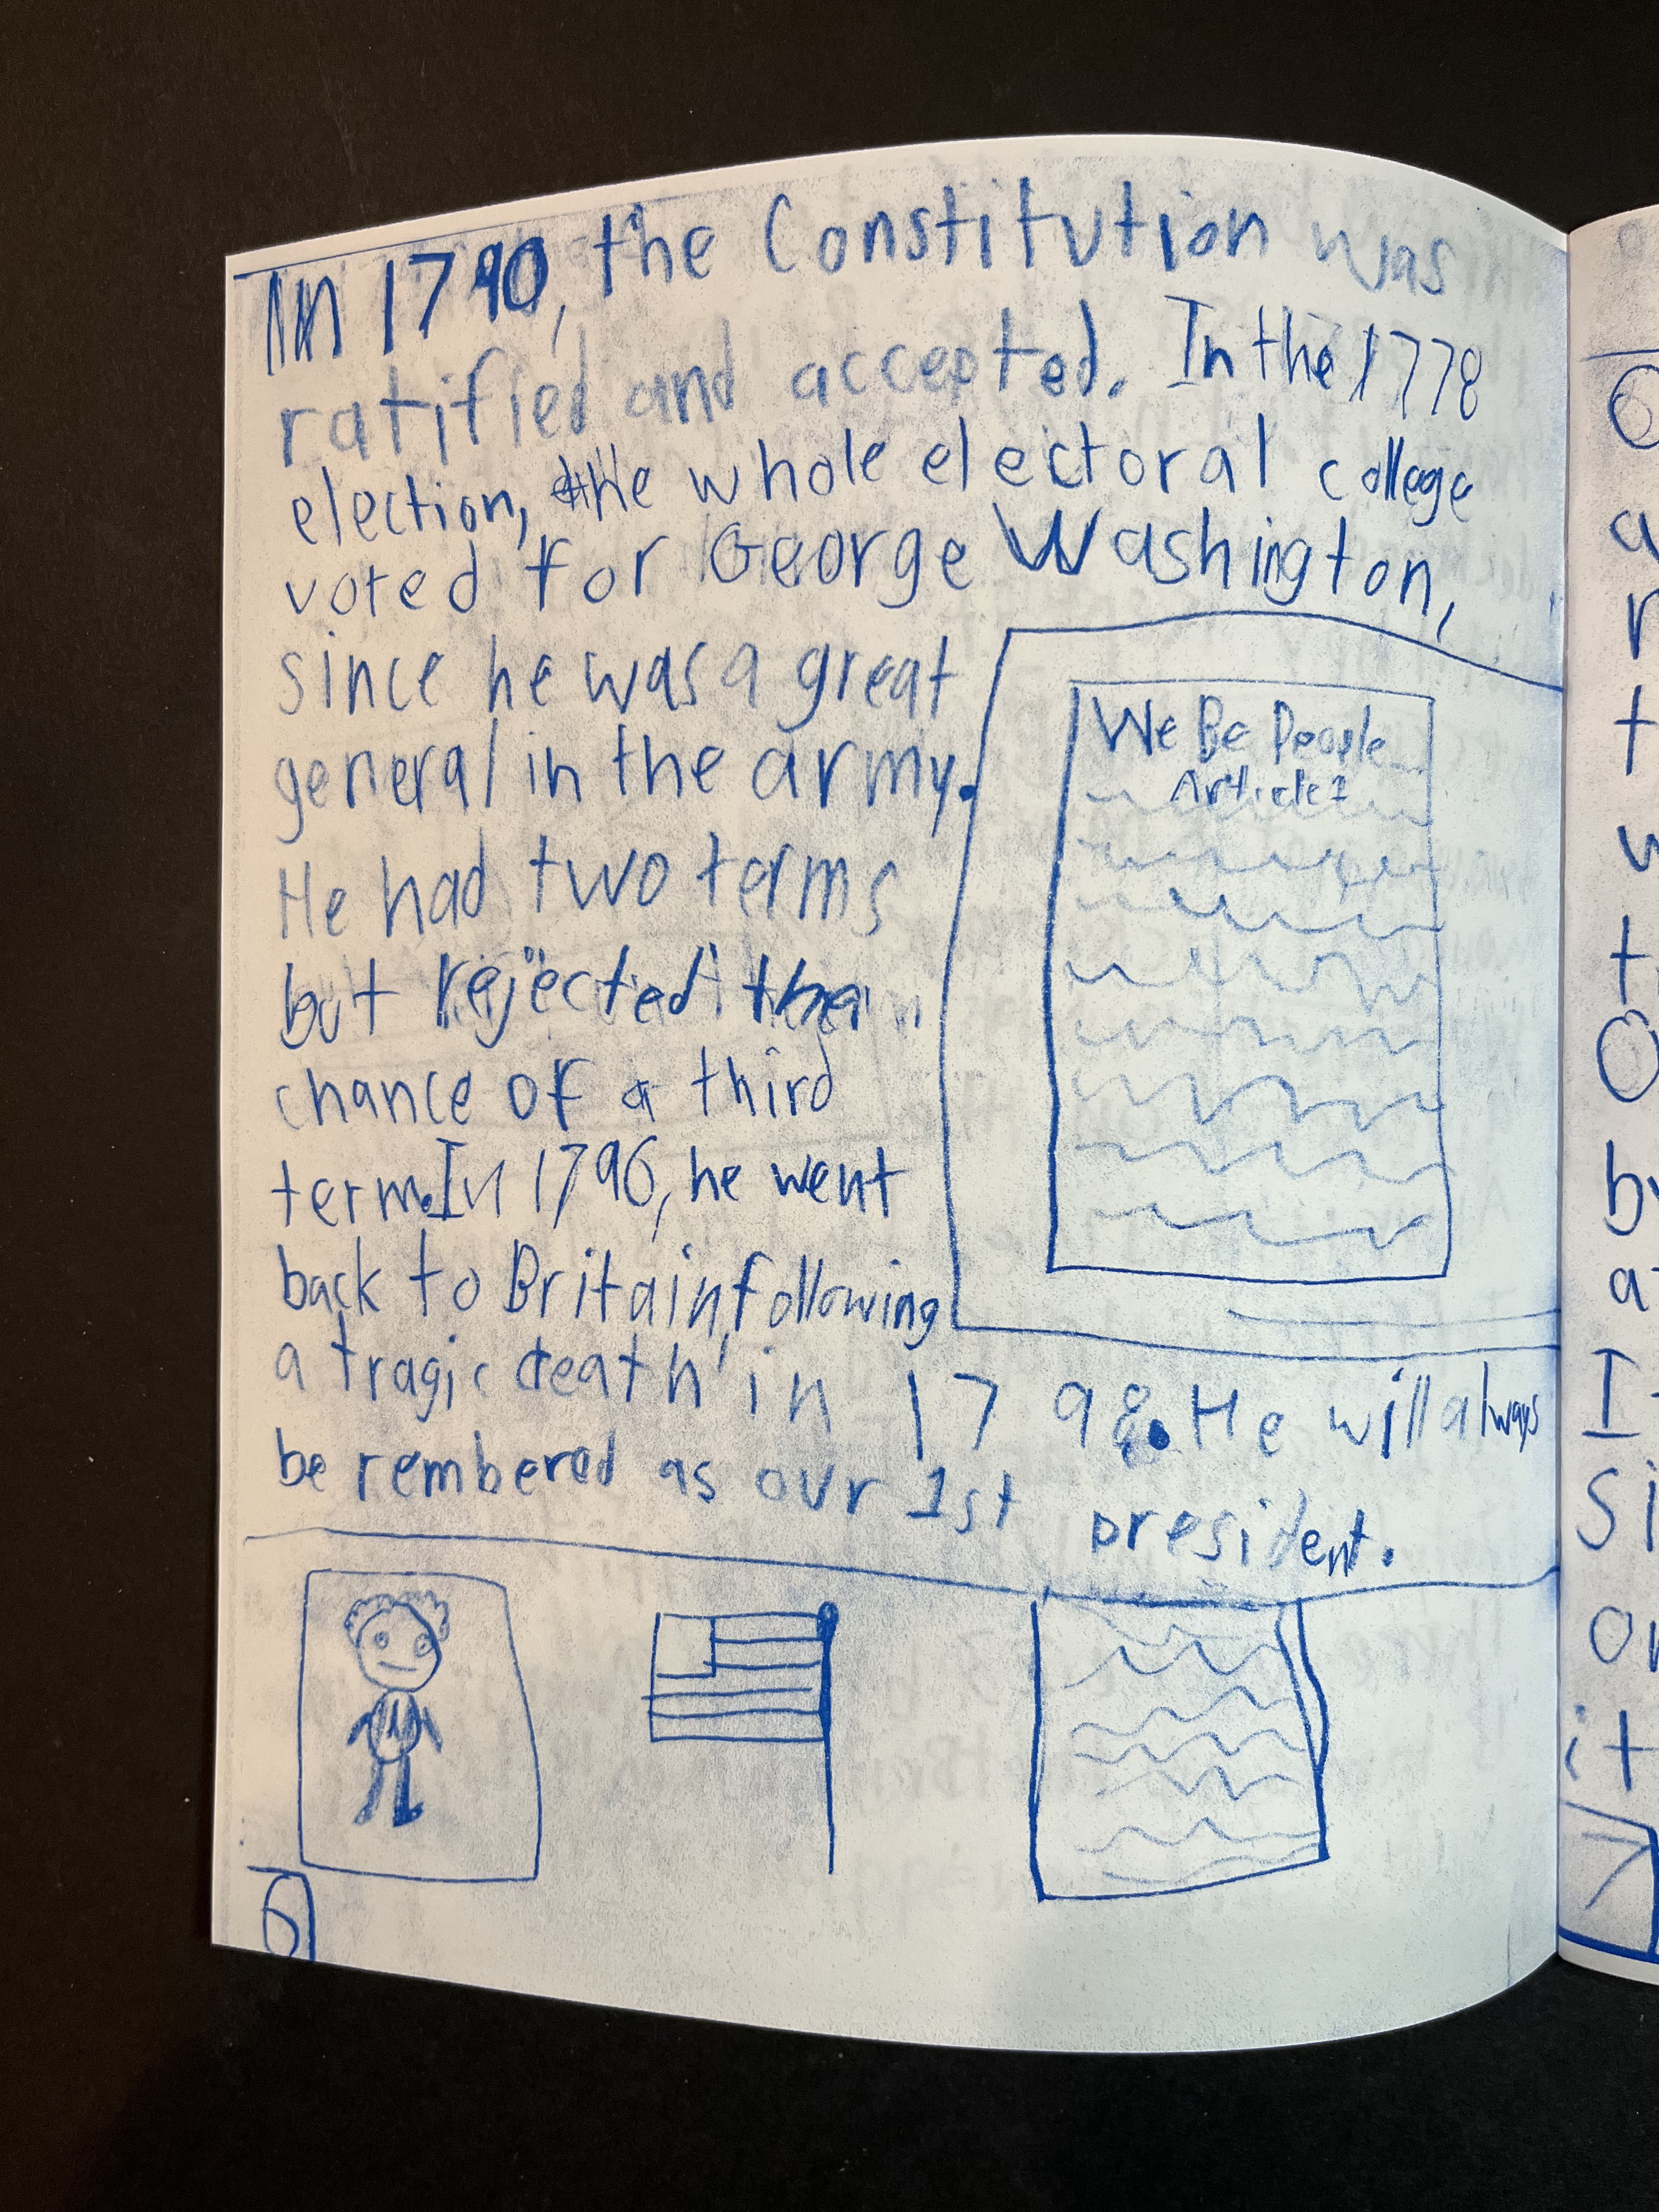 In 1790, the Constitution was
ratified and accepted. In the 1778
election, the whole electoral college
voted for George Washington,
since he was a great
general in the army.
He had two terms
but rejected the
chance of a third
term. In 1796, he went
back to Britain, following
a tragic death in 1798. He will always
be rembered as our 1st president.
We Be People
Article 1
6
7